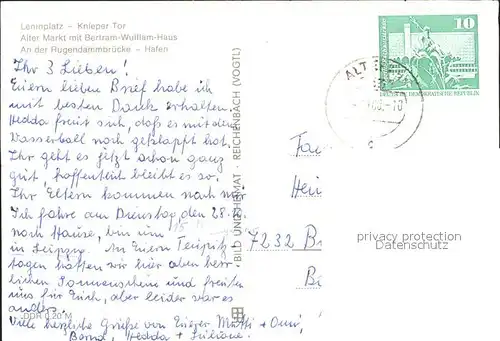 Leninplatz - Knieper Tor
Alter Markt mit Bertram-Wulflam-Haus
An der Rügendammbrücke - Hafen
Ihr 3 Lieben!
Euern lieben Brief habe ich
mit besten Dank erhalten.
Hedda freut sich, daß es mit dem
Wasserball noch geklappt hat.
Ihr geht es jetzt schon ganz
gut, hoffentlich bleibt es so.
Ihr Eltern kommen noch mal
Ich fahre am Dienstag, den 28.
nach Hause, bin um 15
in Leipzig. In Euern
tagen hatten wir hier aber herr-
lichen Sonnenschein und freuten
uns für Euch, aber leider war es
anders.
Viele herzliche Grüße von Eurer Mutti + Omi,
Bernd, Hedda +
DDR 0,20 M
BILD UND HEIMAT · REICHENBACH (VOGTL)
10
DEUTSCHE DEMOKRATISCHE REPUBLIK
ALT
-10
Fa
Hei
7232 B
privacy protection
Datenschutz